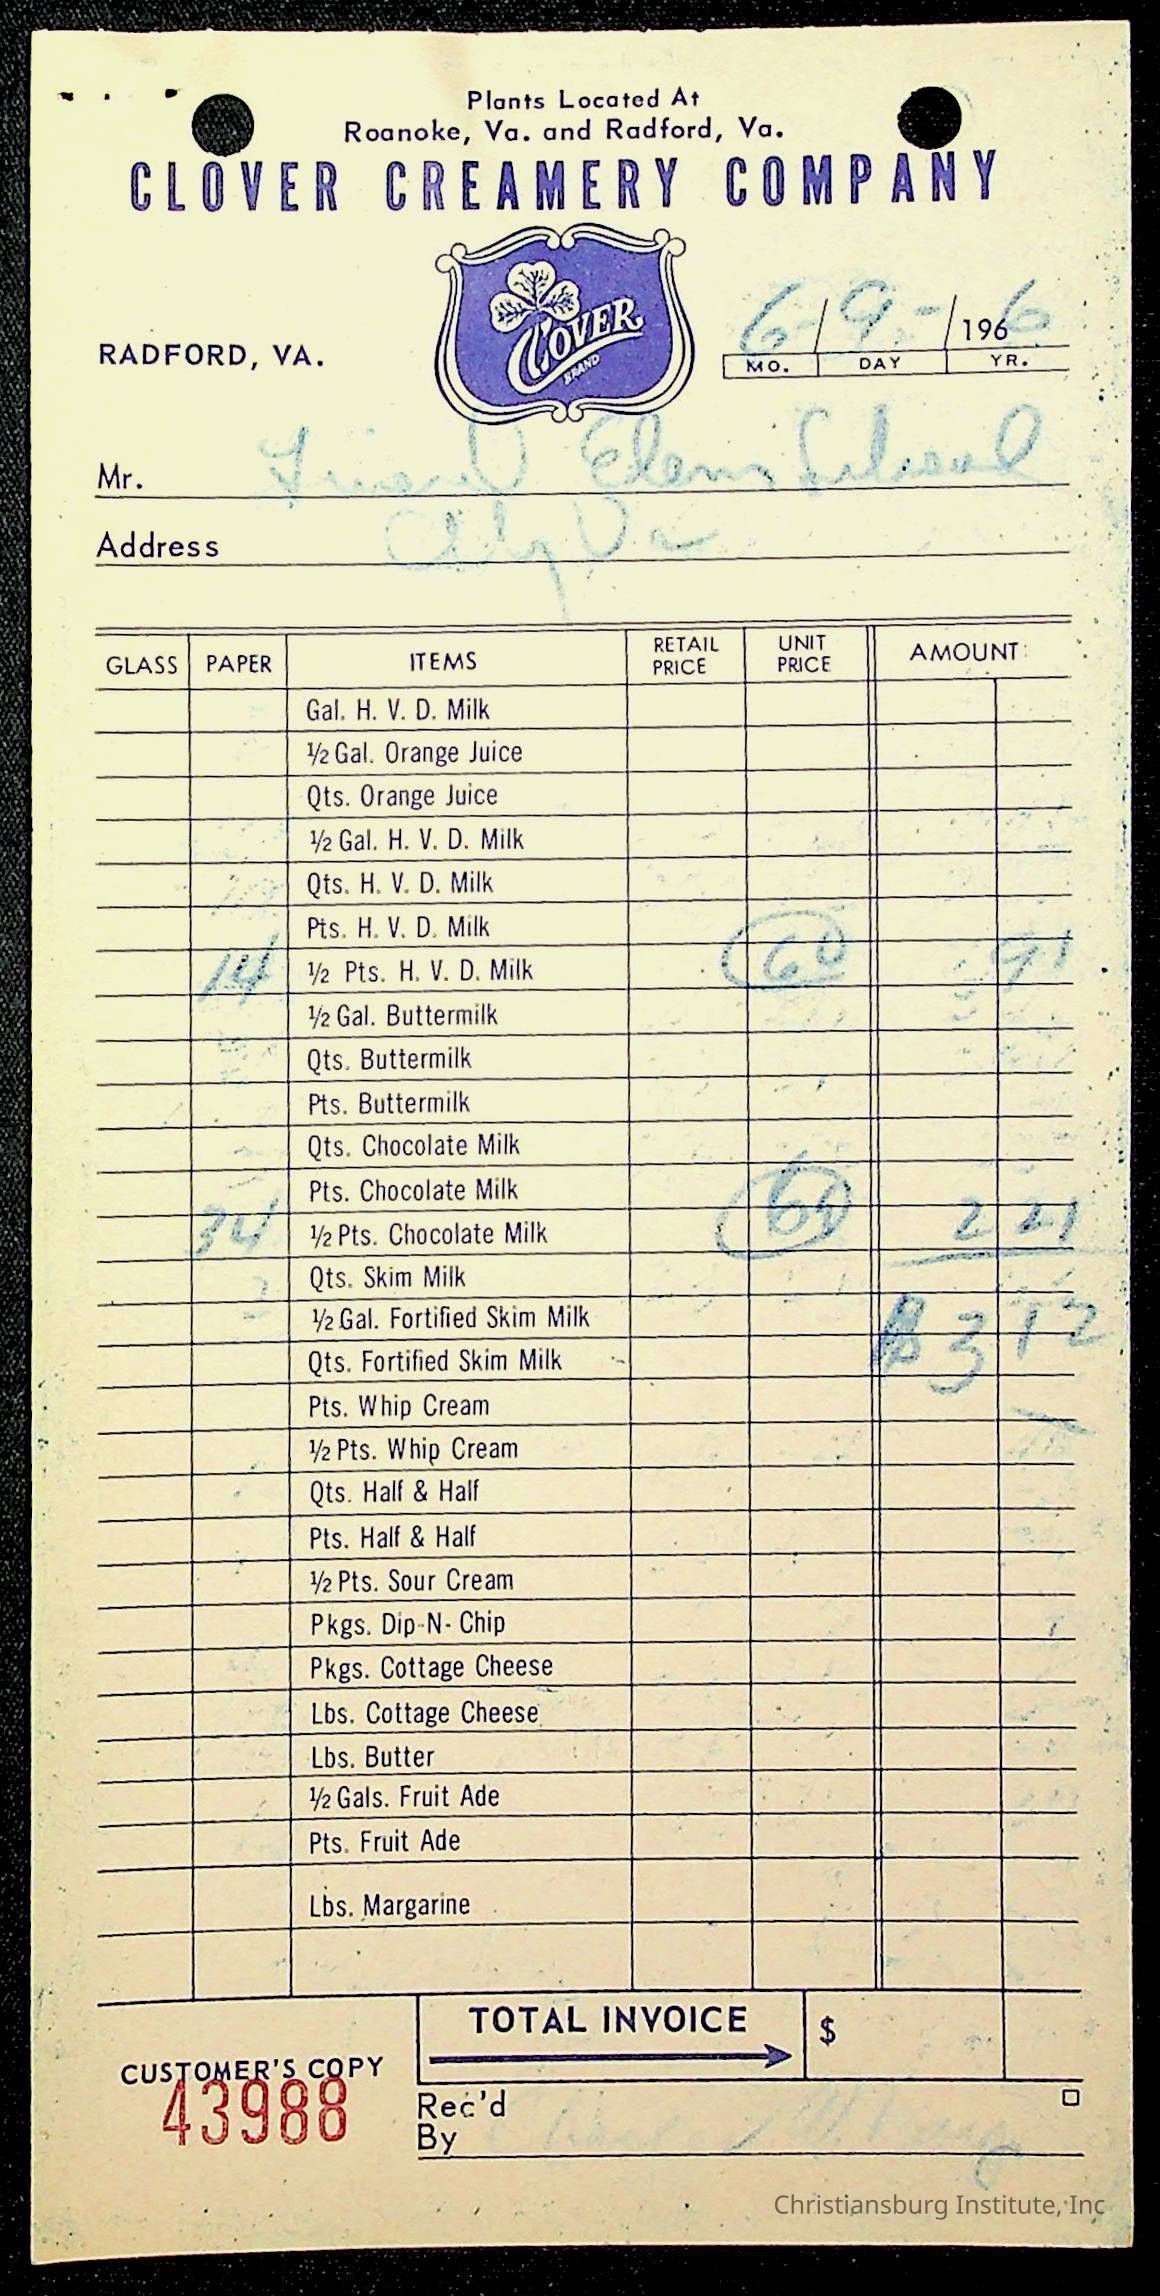 Plants Located At
Roanoke, Va. and Radford, Va.
CLOVER CREAMERY COMPANY
CLOVER
BRAND
RADFORD, VA.
6 / 9 / 1966
MO. DAY YR.
Mr. Friend Elem School
Address Va
GLASS PAPER ITEMS RETAIL PRICE UNIT PRICE AMOUNT
Gal. H. V. D. Milk
½ Gal. Orange Juice
Qts. Orange Juice
½ Gal. H. V. D. Milk
Qts. H. V. D. Milk
Pts. H. V. D. Milk
14 ½ Pts. H. V. D. Milk 91
½ Gal. Buttermilk
Qts. Buttermilk
Pts. Buttermilk
Qts. Chocolate Milk
Pts. Chocolate Milk
34 ½ Pts. Chocolate Milk 2 21
Qts. Skim Milk
½ Gal. Fortified Skim Milk $3 12
Qts. Fortified Skim Milk
Pts. Whip Cream
½ Pts. Whip Cream
Qts. Half & Half
Pts. Half & Half
½ Pts. Sour Cream
Pkgs. Dip-N-Chip
Pkgs. Cottage Cheese
Lbs. Cottage Cheese
Lbs. Butter
½ Gals. Fruit Ade
Pts. Fruit Ade
Lbs. Margarine
TOTAL INVOICE $
CUSTOMER'S COPY
43988
Rec'd
By
Christiansburg Institute, Inc